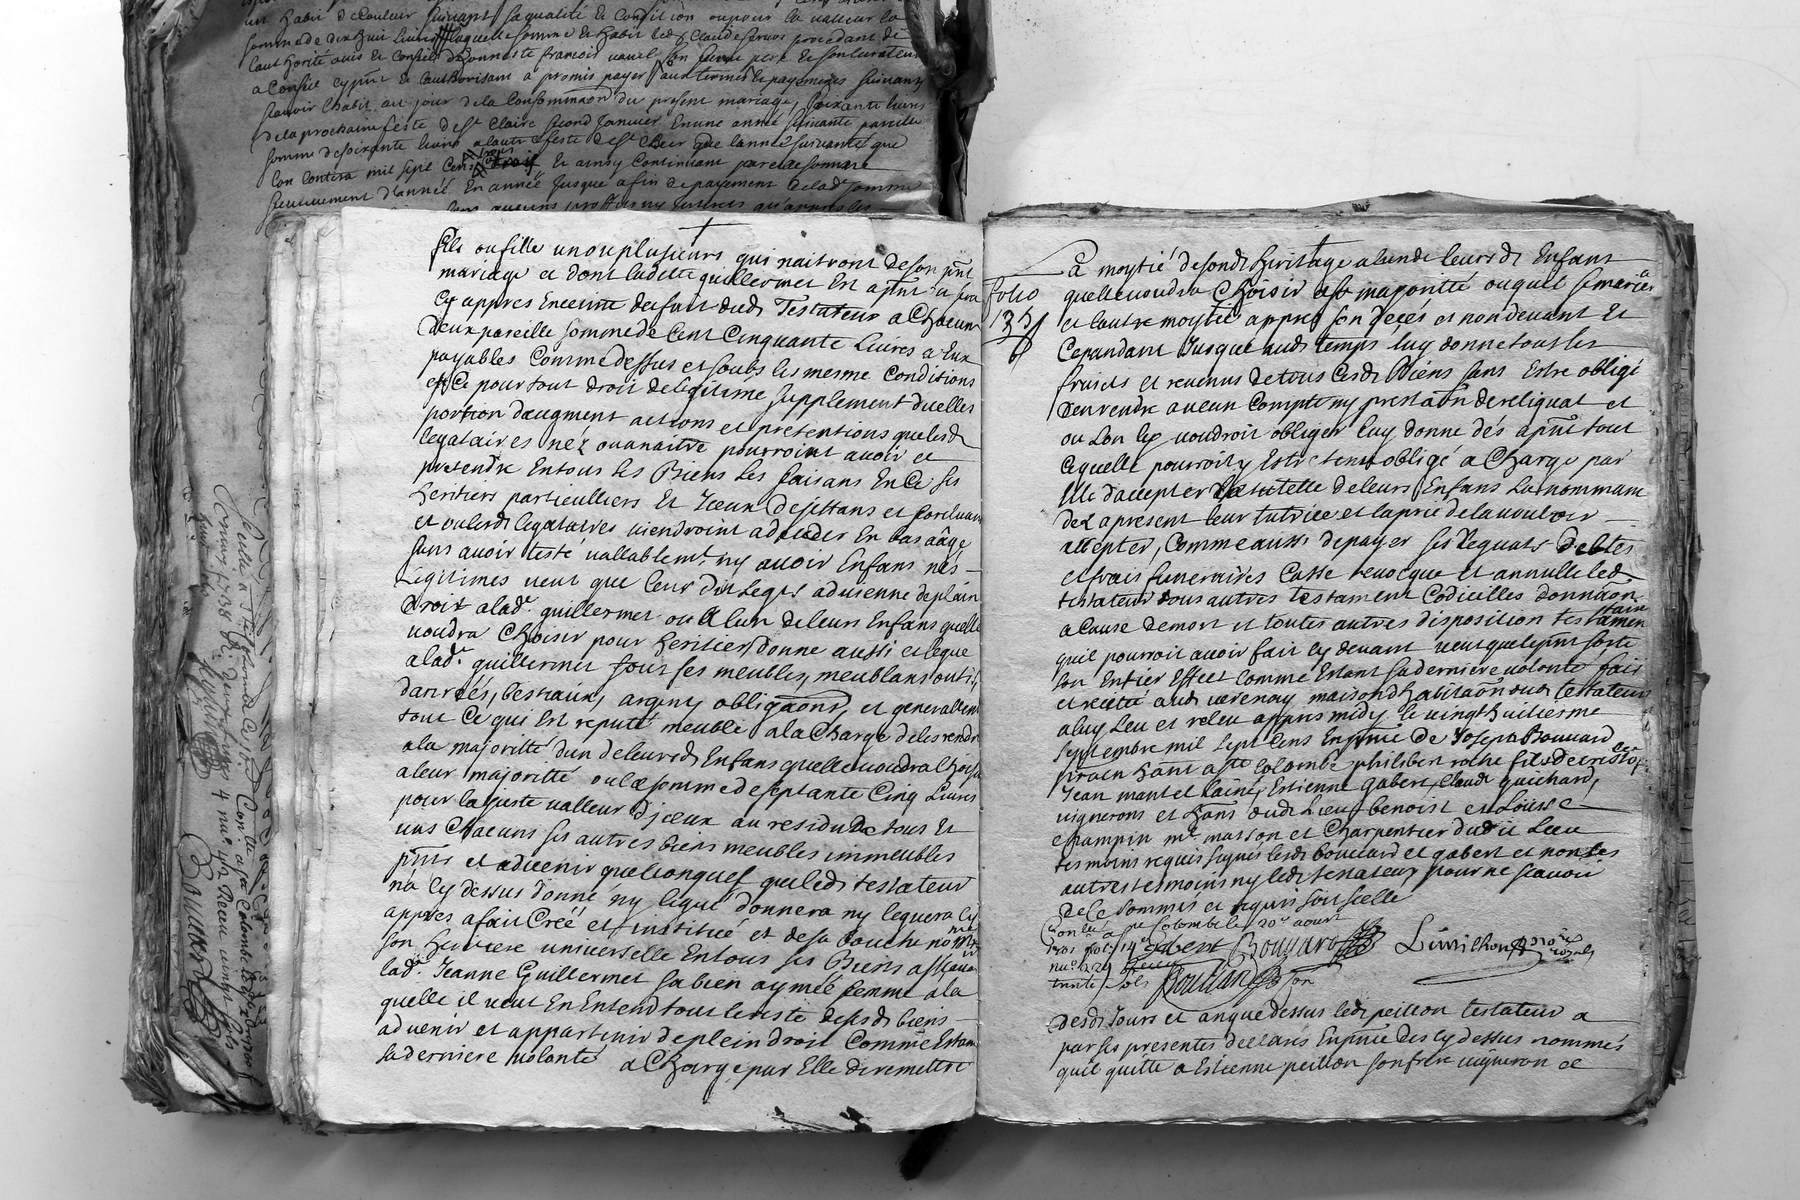 un habit de couleur suivant sa qualité et condition ou pour la valleur la
somme de dix huit livres laquelle somme et habit led. Claude procedant de
lauthorité avis et conseil dhonneste françois son pere et son curateur
a conseil cy pnt et lauthorisant a promis payer aux termes et payemens suivans
scavoir lhabit au jour de la consommaon du present mariage, soixante livres
de la prochaine feste de Ste Claire second Janvier en une année suivante pareille
somme de soixante livres a lautre feste de Ste Claire que lannée suivante que
lon contera mil sept cens trois et ainsy continuant pareille somme
annuellement d'année en année jusque a fin de payement de lad. somme
fils ou fille un ou plusieurs qui naitront de son pnt
mariage et dont ladette guillermet est apnt ou sera
cy appres enceinte du fait dud. Testateur a chacun
deux pareille somme de cent cinquante livres a eux
payables comme dessus et soubs les mesme conditions
et ce pour tout droit de legitime supplement d'icelles
portion daugment actions et pretentions que lesd.
legataires nez ou a naitre pourroint avoir et
pretendre en tous ses Biens les faisans en ce ses
heritiers particulliers et iceux dejettans et forcluant
et ou lesd. legataires viendroint a deceder en bas aage
sans avoir testé vallablemt. ny avoir Enfans nés
Legitimes veut que leur dit legs advienne de plain
droit a lad. guillermet ou a lun de leurs Enfans quelle
voudra choisir pour heritier, donne aussi et legue
a lad. guillermet tous ses meubles, meublans, outils,
danrées, bestiaux, argent, obligaons, et generallemt
tout ce qui est reputé meuble a la charge de les rendre
a la majoritté dun de leursd. Enfans quelle voudra choisir
a leur majoritté ou la somme de septante cinq Livres
pour la juste valleur d'iceux au residu de tous et
uns chacuns ses autres biens meubles immeubles
pnts et advenir quelconques que led. testateur
na cy dessus donné ny legué donnera ny leguera cy
appres a fait créé et institué et de sa bouche nommé
son heritiere universelle en tous ses Biens assavoir
lad. Jeanne Guillermet sa bien aymée femme a la
quelle il veut en entend tout le reste desd. biens
advenir et appartenir de plein droit comme estant
sa derniere volonté a charge par Elle de remettre
folio
135
La moytié desond. heritage a lun de leursd. Enfans
quelle voudra choisir a sa majoritté ou quil se mariera
et lautre moytié appres son deces et non devant et
cependant jusque aud. temps luy donne tous les
fruits et revenus de tous cesd. Biens sans estre obligé
den rendre aucun compte ny prestaon de reliquat et
ou lon ly voudroit obliger luy donne dés apnt tout
ce quelle pourroit y estre tenu obligé a charge par
Elle d'accepter la tutelle de leurs Enfans la nommant
dez a present leur tutrice et la prie de la vouloir
accepter, comme aussi de payer ses legats debtes
et frais funeraires casse revocque et annulle led.
testateur tous autres testament codicilles donnaon
a cause de mort et toutes autres disposition testamentaire
quil pourroit avoir fait cy devant veut que le pnt sorte
son entier effect comme Estant sa derniere volonté fait
et recité aud. verenay maison d'habitaon dud. testateur
a luy leu et releu appres midy le vingt huitieme
septembre mil sept cens En pnce de Joseph Bouvard
praen hant a ste Colombe philibert roche fils de cristofle
Jean mantel lainé, Estienne gabert, Claude guichard,
vignerons et hans dud. Lieu benoist et Loüis
champin me. masson et charpentier dudit Lieu
tesmoins requis signés lesd. bouvard et gabert et non les
autres tesmoins ny led. testateur pour ne scavoir
de ce sommés et requis soit scellé
Conlé a ste Colombe le 20e aoust
gabert Bouvard
Receu
trente sols
Bouvard
nore royal
Desd. Jours et an que dessus led. peillon testateur a
par ses presentes declarés En pnce des cy dessus nommés
quil quitte a Estienne peillon son frere vigneron de